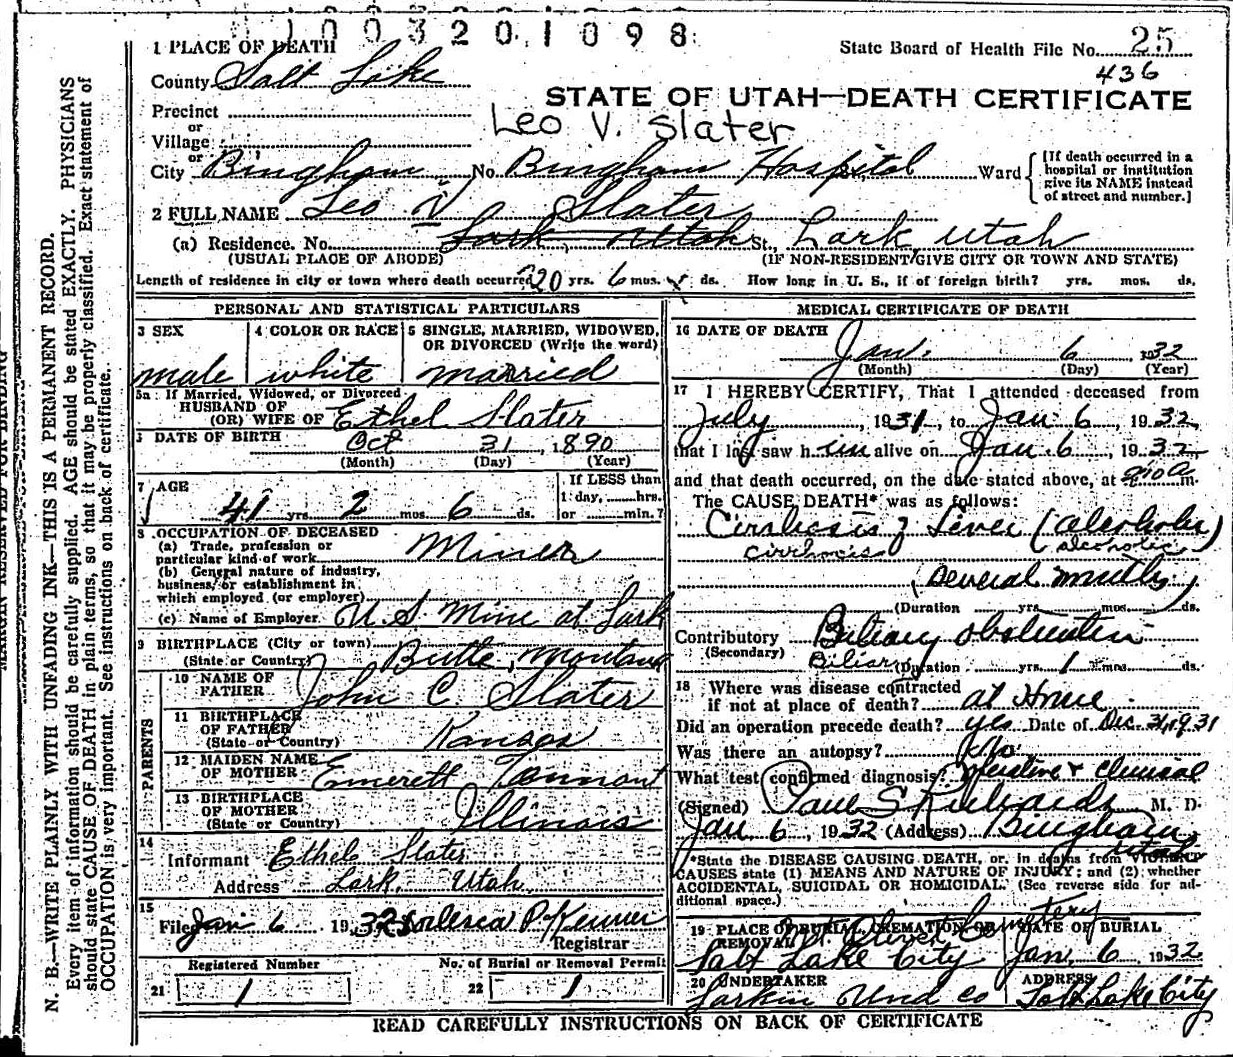 1003201098
1 PLACE OF DEATH
State Board of Health File No. 25
436
County Salt Lake
STATE OF UTAH—DEATH CERTIFICATE
Precinct
or
Leo V. Slater
Village
or
City Bingham No Bingham Hospital St., Ward
[If death occurred in a hospital or institution give its NAME instead of street and number.]
2 FULL NAME Leo V Slater
(a) Residence. No. Lark, Utah St., Lark, Utah
(USUAL PLACE OF ABODE) (IF NON-RESIDENT GIVE CITY OR TOWN AND STATE)
Length of residence in city or town where death occurred 20 yrs. 6 mos. ds. How long in U. S., if of foreign birth? yrs. mos. ds.
PERSONAL AND STATISTICAL PARTICULARS
3 SEX 4 COLOR OR RACE 5 SINGLE, MARRIED, WIDOWED, OR DIVORCED (Write the word)
male white married
5a If Married, Widowed, or Divorced
HUSBAND OF
(OR) WIFE OF Ethel Slater
6 DATE OF BIRTH Oct 31, 1890
(Month) (Day) (Year)
7 AGE If LESS than
1 day, hrs.
41 yrs 2 mos. 6 ds. or min.?
8 OCCUPATION OF DECEASED
(a) Trade, profession or
particular kind of work Miner
(b) General nature of industry,
business, or establishment in
which employed (or employer)
(c) Name of Employer U.S Mine at Lark
9 BIRTHPLACE (City or town)
(State or Country) Butte, Montana
PARENTS
10 NAME OF
FATHER John C Slater
11 BIRTHPLACE
OF FATHER
(State or Country) Kansas
12 MAIDEN NAME
OF MOTHER Emerett Tennant
13 BIRTHPLACE
OF MOTHER
(State or Country) Illinois
14
Informant Ethel Slater
Address Lark, Utah
15
Filed Jan 6 1932
Registrar
Registered Number No. of Burial or Removal Permit
21 1 22 1
MEDICAL CERTIFICATE OF DEATH
16 DATE OF DEATH
Jan. 6, 1932
(Month) (Day) (Year)
17 I HEREBY CERTIFY, That I attended deceased from
July, 1931, to Jan 6, 1932,
that I last saw him alive on Jan. 6, 1932
and that death occurred, on the date stated above, at m.
The CAUSE DEATH* was as follows:
Cirrhosis of Liver (alcoholic)
cirrhocis alcoholic
(Several months)
(Duration yrs. mos. ds.
Contributory Biliary obstruction
(Secondary) Biliary (Duration yrs. 1 mos. ds.
18 Where was disease contracted
if not at place of death? at Home
Did an operation precede death? yes Date of Dec. 31, 1931
Was there an autopsy? No.
What test confirmed diagnosis? Operative & Clinical
(Signed) Paul S Richards M. D.
Jan 6, 1932 (Address) Bingham, Utah
*State the DISEASE CAUSING DEATH, or, in deaths from VIOLENT
CAUSES state (1) MEANS AND NATURE OF INJURY; and (2) whether
ACCIDENTAL, SUICIDAL OR HOMICIDAL. (See reverse side for ad-
ditional space.)
19 PLACE OF BURIAL, CREMATION OR REMOVAL DATE OF BURIAL
Mt. Olivet Cemetery
Salt Lake City Jan. 6, 1932
20 UNDERTAKER ADDRESS
Larkin Und Co Salt Lake City
READ CAREFULLY INSTRUCTIONS ON BACK OF CERTIFICATE
MARGIN RESERVED FOR BINDING
N. B.—WRITE PLAINLY WITH UNFADING INK—THIS IS A PERMANENT RECORD.
Every item of information should be carefully supplied. AGE should be stated EXACTLY. PHYSICIANS
should state CAUSE OF DEATH in plain terms, so that it may be properly classified. Exact statement of
OCCUPATION is very important. See instructions on back of certificate.